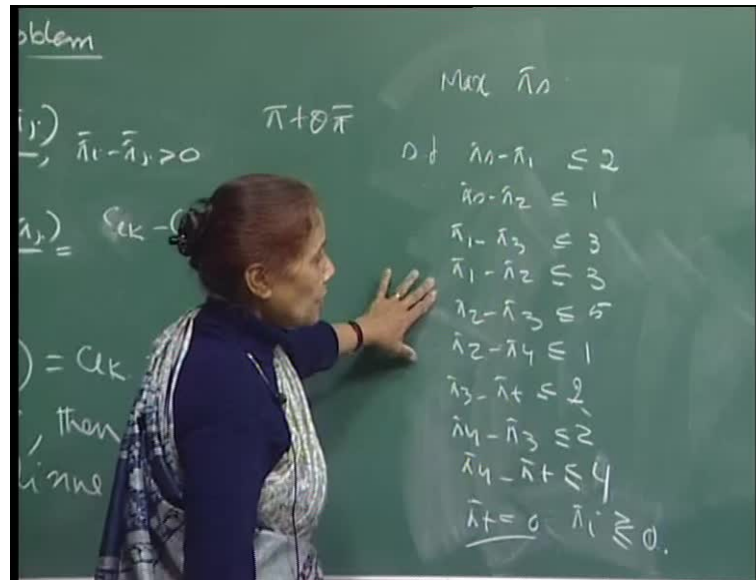 oblem
π̄i - π̄j > 0
π̄ + θπ̄
) = Clk
, then
linue
Max π̄s
s t π̄s - π̄1 ≤ 2
π̄s - π̄2 ≤ 1
π̄1 - π̄3 ≤ 3
π̄1 - π̄2 ≤ 3
π̄2 - π̄3 ≤ 5
π̄2 - π̄4 ≤ 1
π̄3 - π̄t ≤ 2
π̄4 - π̄3 ≤ 2
π̄4 - π̄t ≤ 4
π̄t = 0 π̄i ≷ 0.